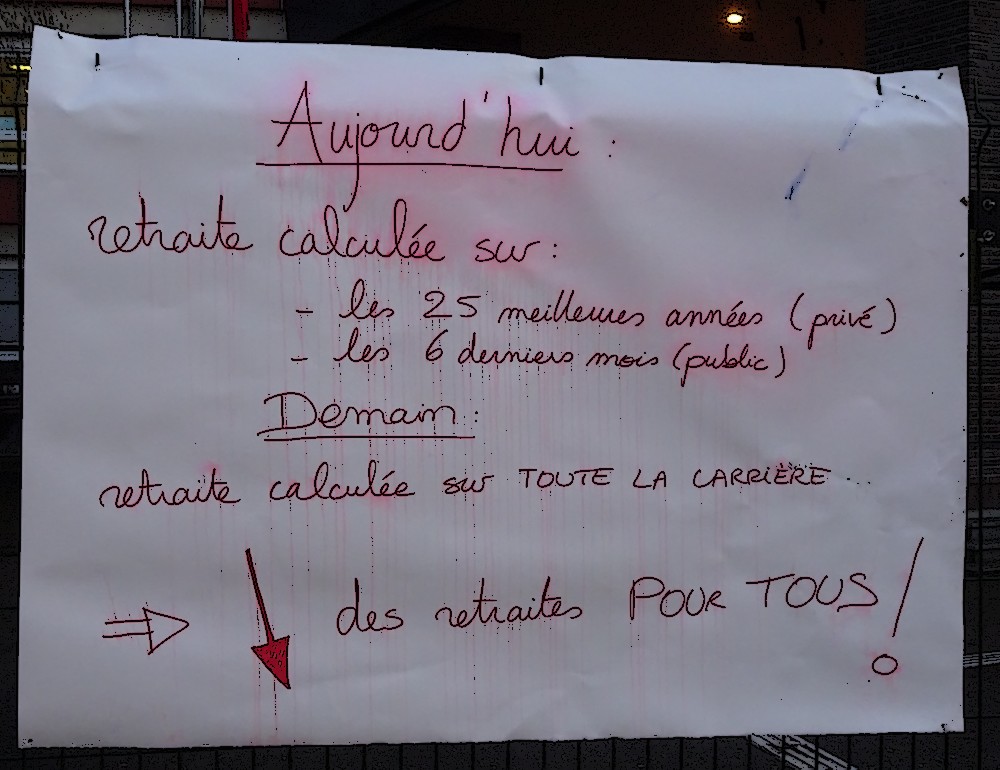 Aujourd'hui :
retraite calculée sur :
- les 25 meilleures années (privé)
- les 6 derniers mois (public)
Demain :
retraite calculée sur TOUTE LA CARRIÈRE...
⇒ ↓ des retraites POUR TOUS !